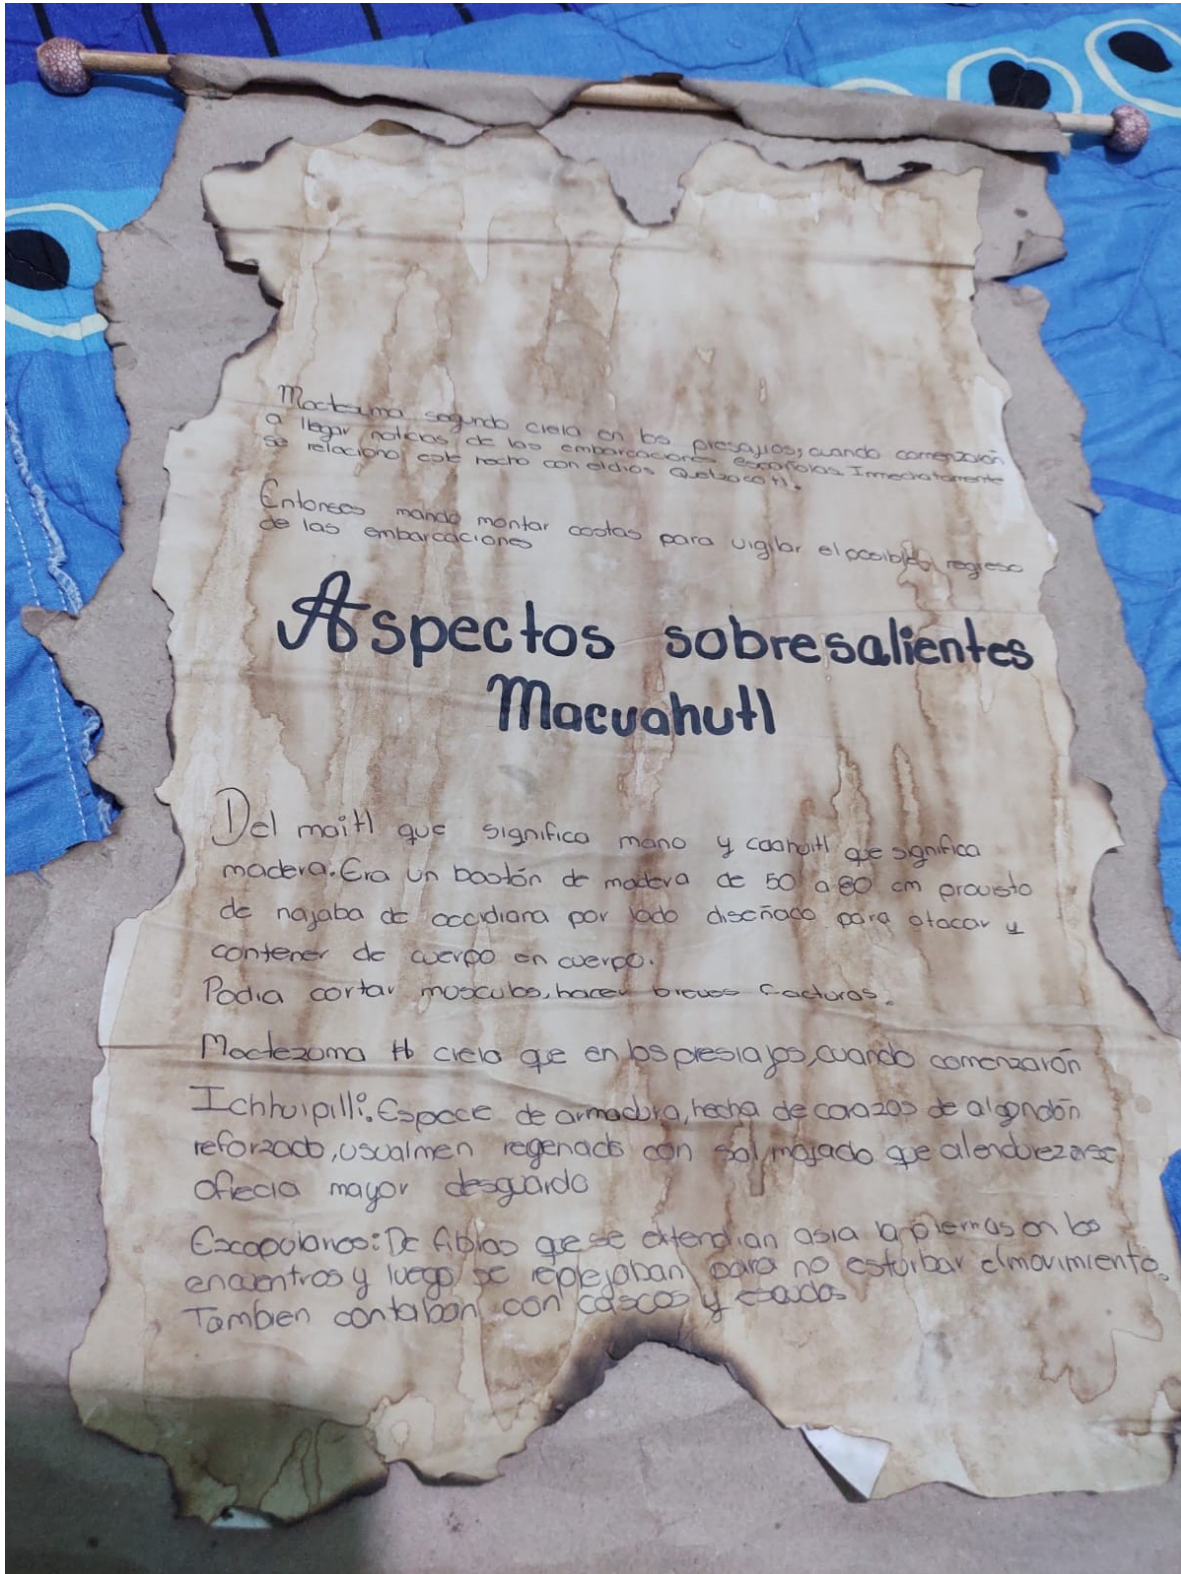 Moctezuma segundo creia en los presajios, cuando comenzarón
a llegar noticias de las embarcaciones españolas Immediatamente
se relaciono este hecho con el dios Quetzacotl.
Entonses mando montar costas para vigilar el posible regreso
de las embarcaciones
Aspectos sobresalientes
Macuahutl
Del maitl que significa mano y coahuitl que significa
madera. Era un bastón de madera de 50 a 80 cm provisto
de najaba de occidiana por lado diseñado para atacar y
contener de cuerpo en cuerpo.
Podia cortar musculos, hacer breves facturas.
Moctezoma II creia que en los presiajos, cuando comenzarón
Ichhuipilli. Espace de armadura, hecha de corazas de algondón
reforzado, usualmen regenado con sal mojado que al endurezerse
ofrecia mayor desguardo
Escopularios: De fiblas que se extendian asia la piernas on los
encuentros y luego se replejaban para no esturbar el movimiento.
Tambien contaban con cascos y escudos